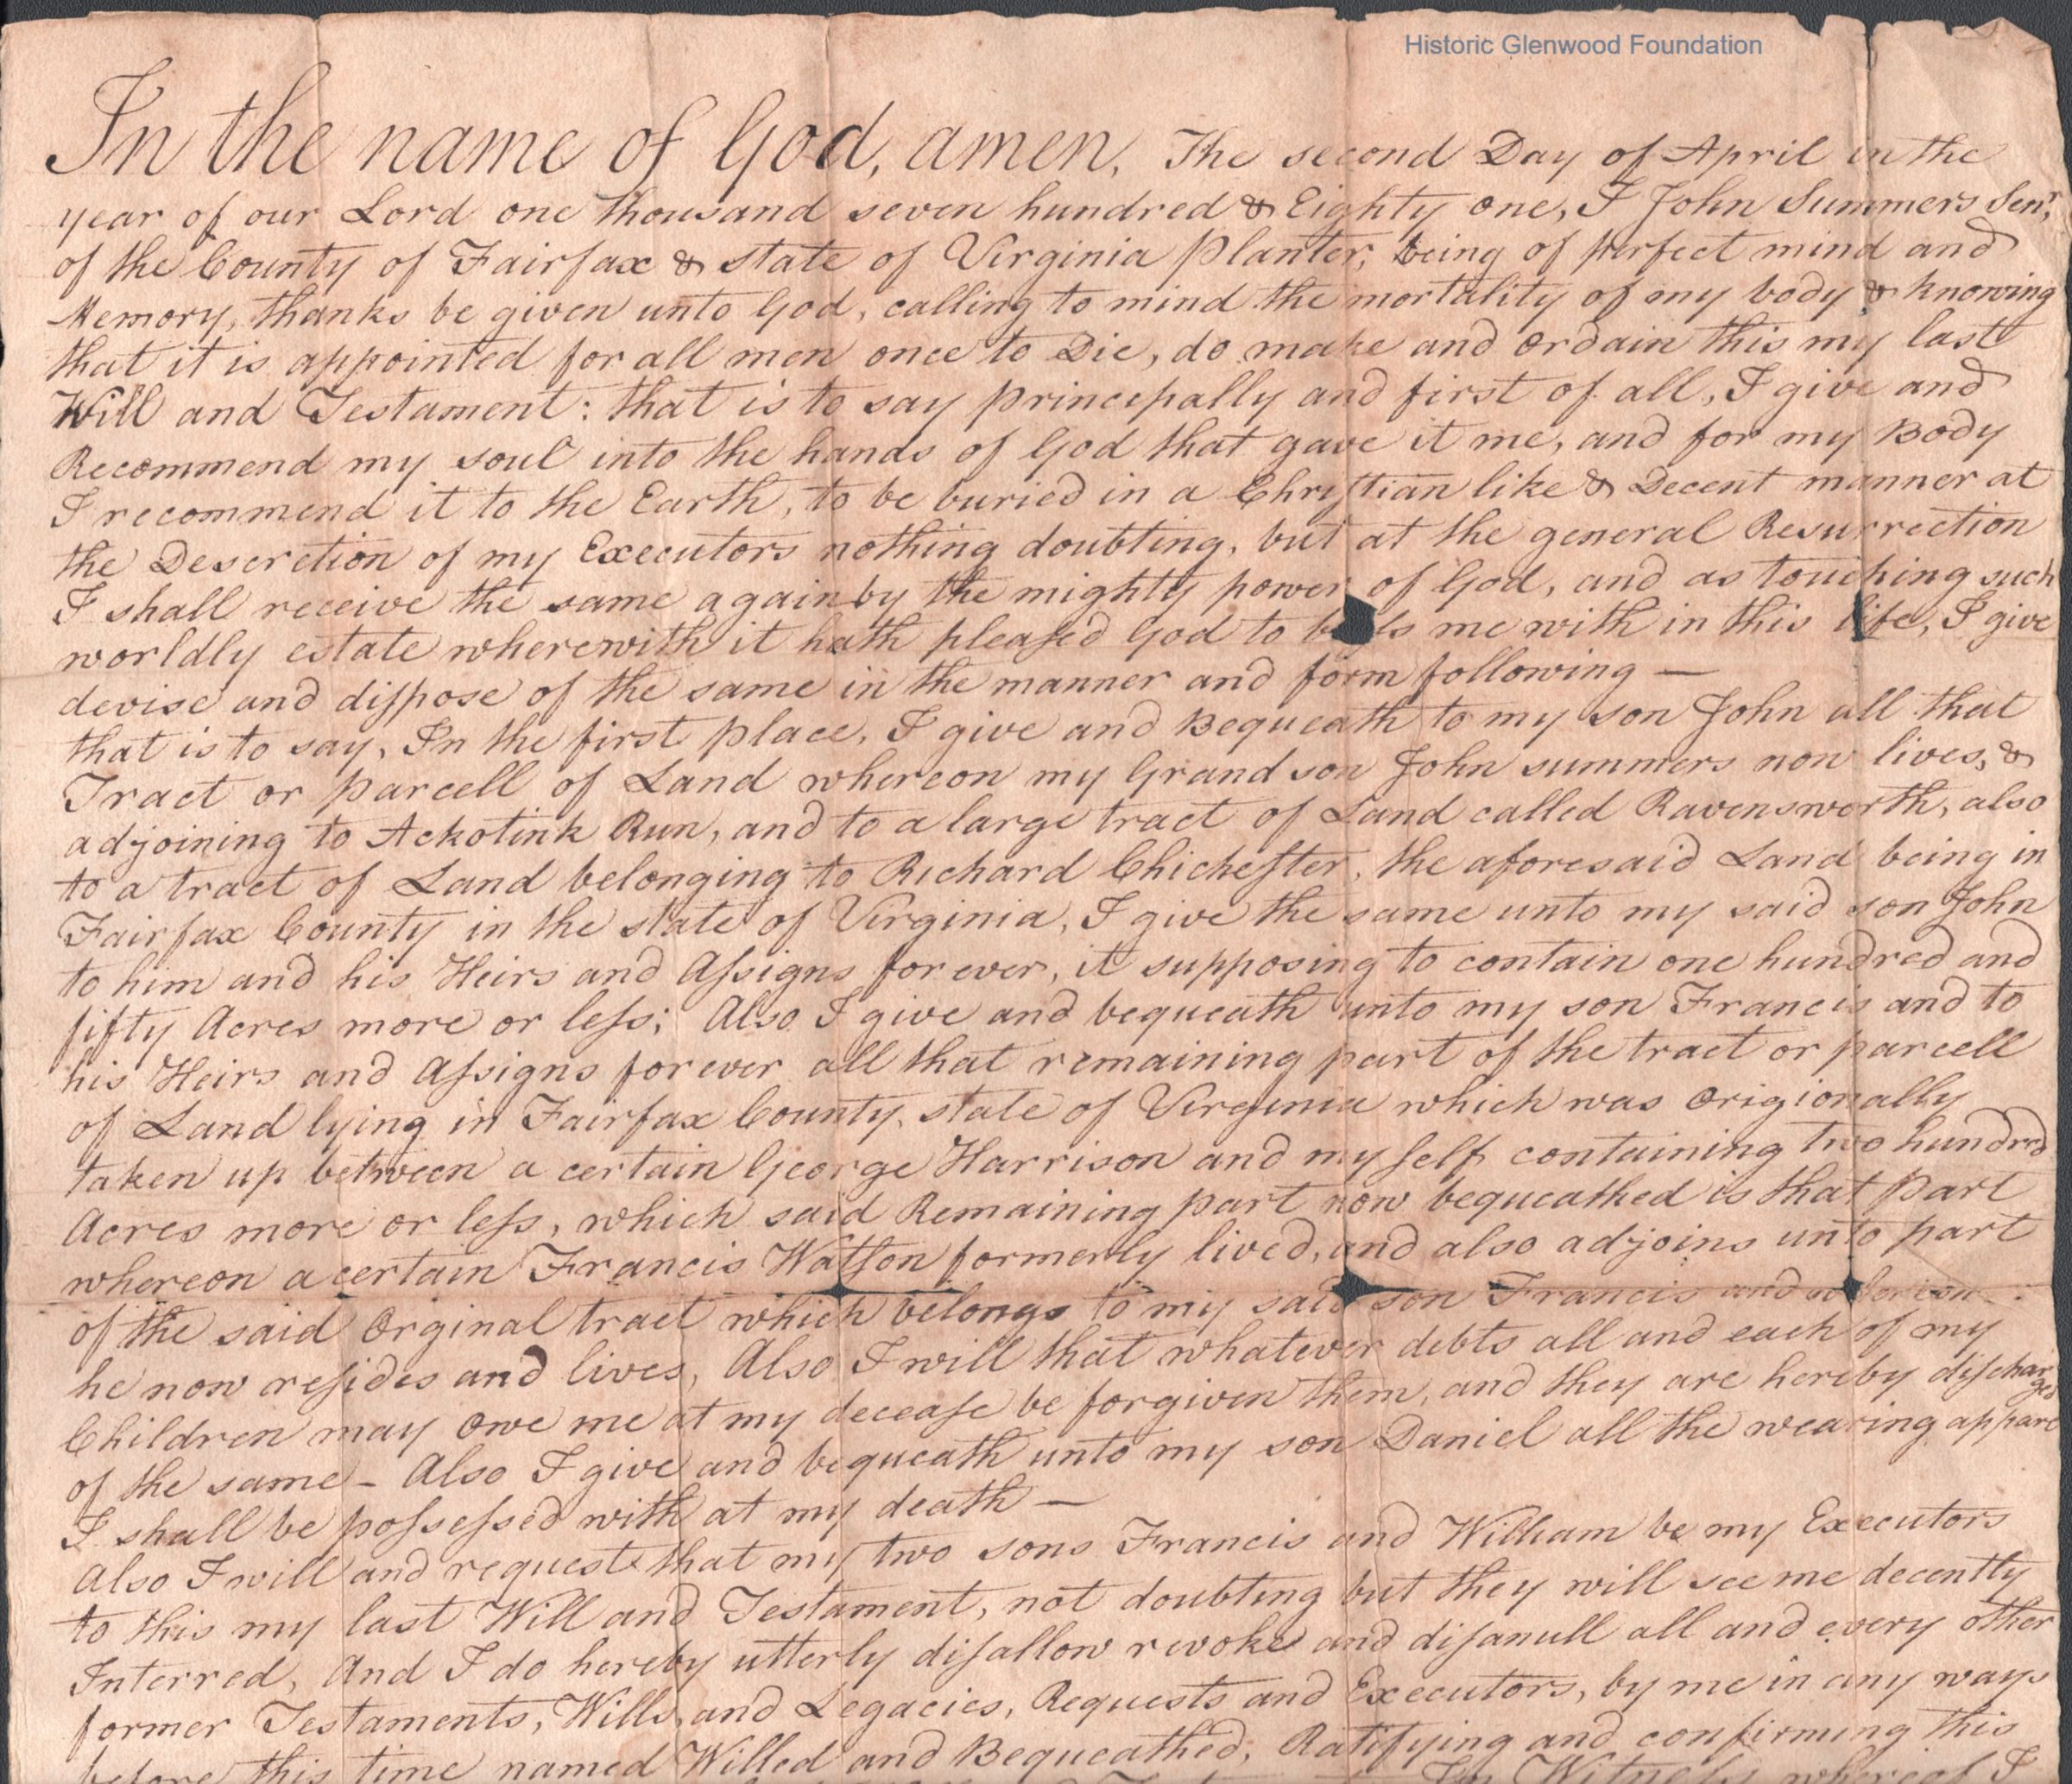 Historic Glenwood Foundation
In the name of God, amen, The second Day of April in the
year of our Lord one thousand seven hundred & Eighty one, I John Summers Senr,
of the County of Fairfax & state of Virginia Planter, being of perfect mind and
Memory, thanks be given unto God, calling to mind the mortality of my body & knowing
that it is appointed for all men once to Die, do make and ordain this my last
Will and Testament: that is to say principally and first of all, I give and
Recommend my soul into the hands of God that gave it me, and for my Body
I recommend it to the Earth, to be buried in a Christian like & Decent manner at
the Descretion of my Executors nothing doubting, but at the general Resurrection
I shall receive the same again by the mighty power of God, and as touching such
worldly estate wherewith it hath pleased God to me with in this life, I give
devise and dispose of the same in the manner and form following —
that is to say, In the first place, I give and Bequeath to my son John all that
Tract or parcell of Land whereon my Grand son John summers now lives, &
adjoining to Ackotink Run, and to a large tract of Land called Ravensworth, also
to a tract of Land belonging to Richard Chichester, the aforesaid Land being in
Fairfax County in the state of Virginia, I give the same unto my said son John
to him and his Heirs and Assigns for ever, it supposing to contain one hundred and
fifty Acres more or less; Also I give and bequeath unto my son Francis and to
his Heirs and Assigns forever all that remaining part of the tract or parcell
of Land lying in Fairfax County, state of Virginia which was origionally
taken up between a certain George Harrison and my self containing two hundred
Acres more or less, which said Remaining part now bequeathed is that part
whereon a certain Francis Watson formerly lived, and also adjoins unto part
of the said Orginal tract which belongs to my said son Francis and whereon
he now resides and lives, Also I will that whatever debts all and each of my
Children may owe me at my decease be forgiven them, and they are hereby discharged
of the same – Also I give and bequeath unto my son Daniel all the wearing apparel
I shall be possessed with at my death —
Also I will and request that my two sons Francis and William be my Executors
to this my last Will and Testament, not doubting but they will see me decently
Interred, And I do hereby utterly disallow revoke and disanull all and every other
former Testaments, Wills, and Legacies, Requests and Executors, by me in any ways
before this time named Willed and Bequeathed, Ratifying and confirming this
In Witness whereof I